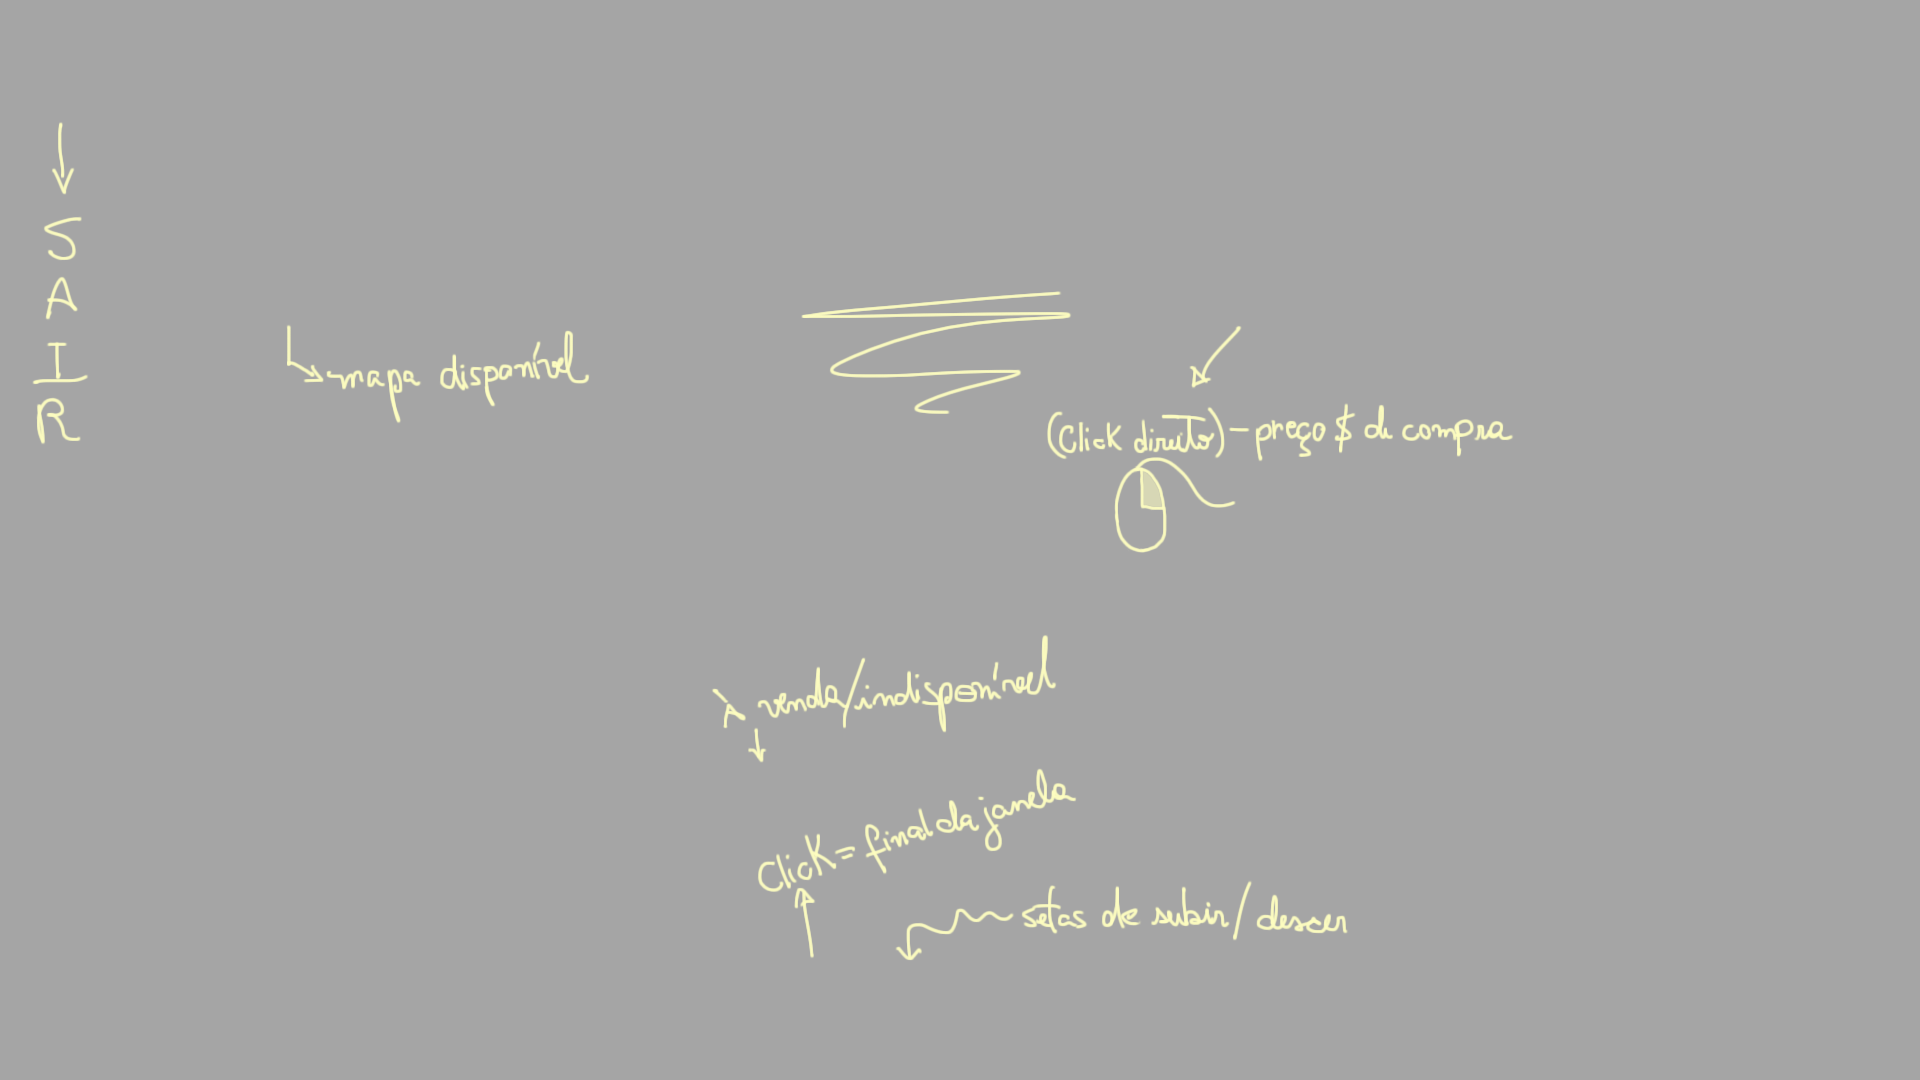 S
A
I
R
mapa disponível
(Click direito) - preço $ de compra
À venda/indisponível
Click = final da janela
setas de subir/descer